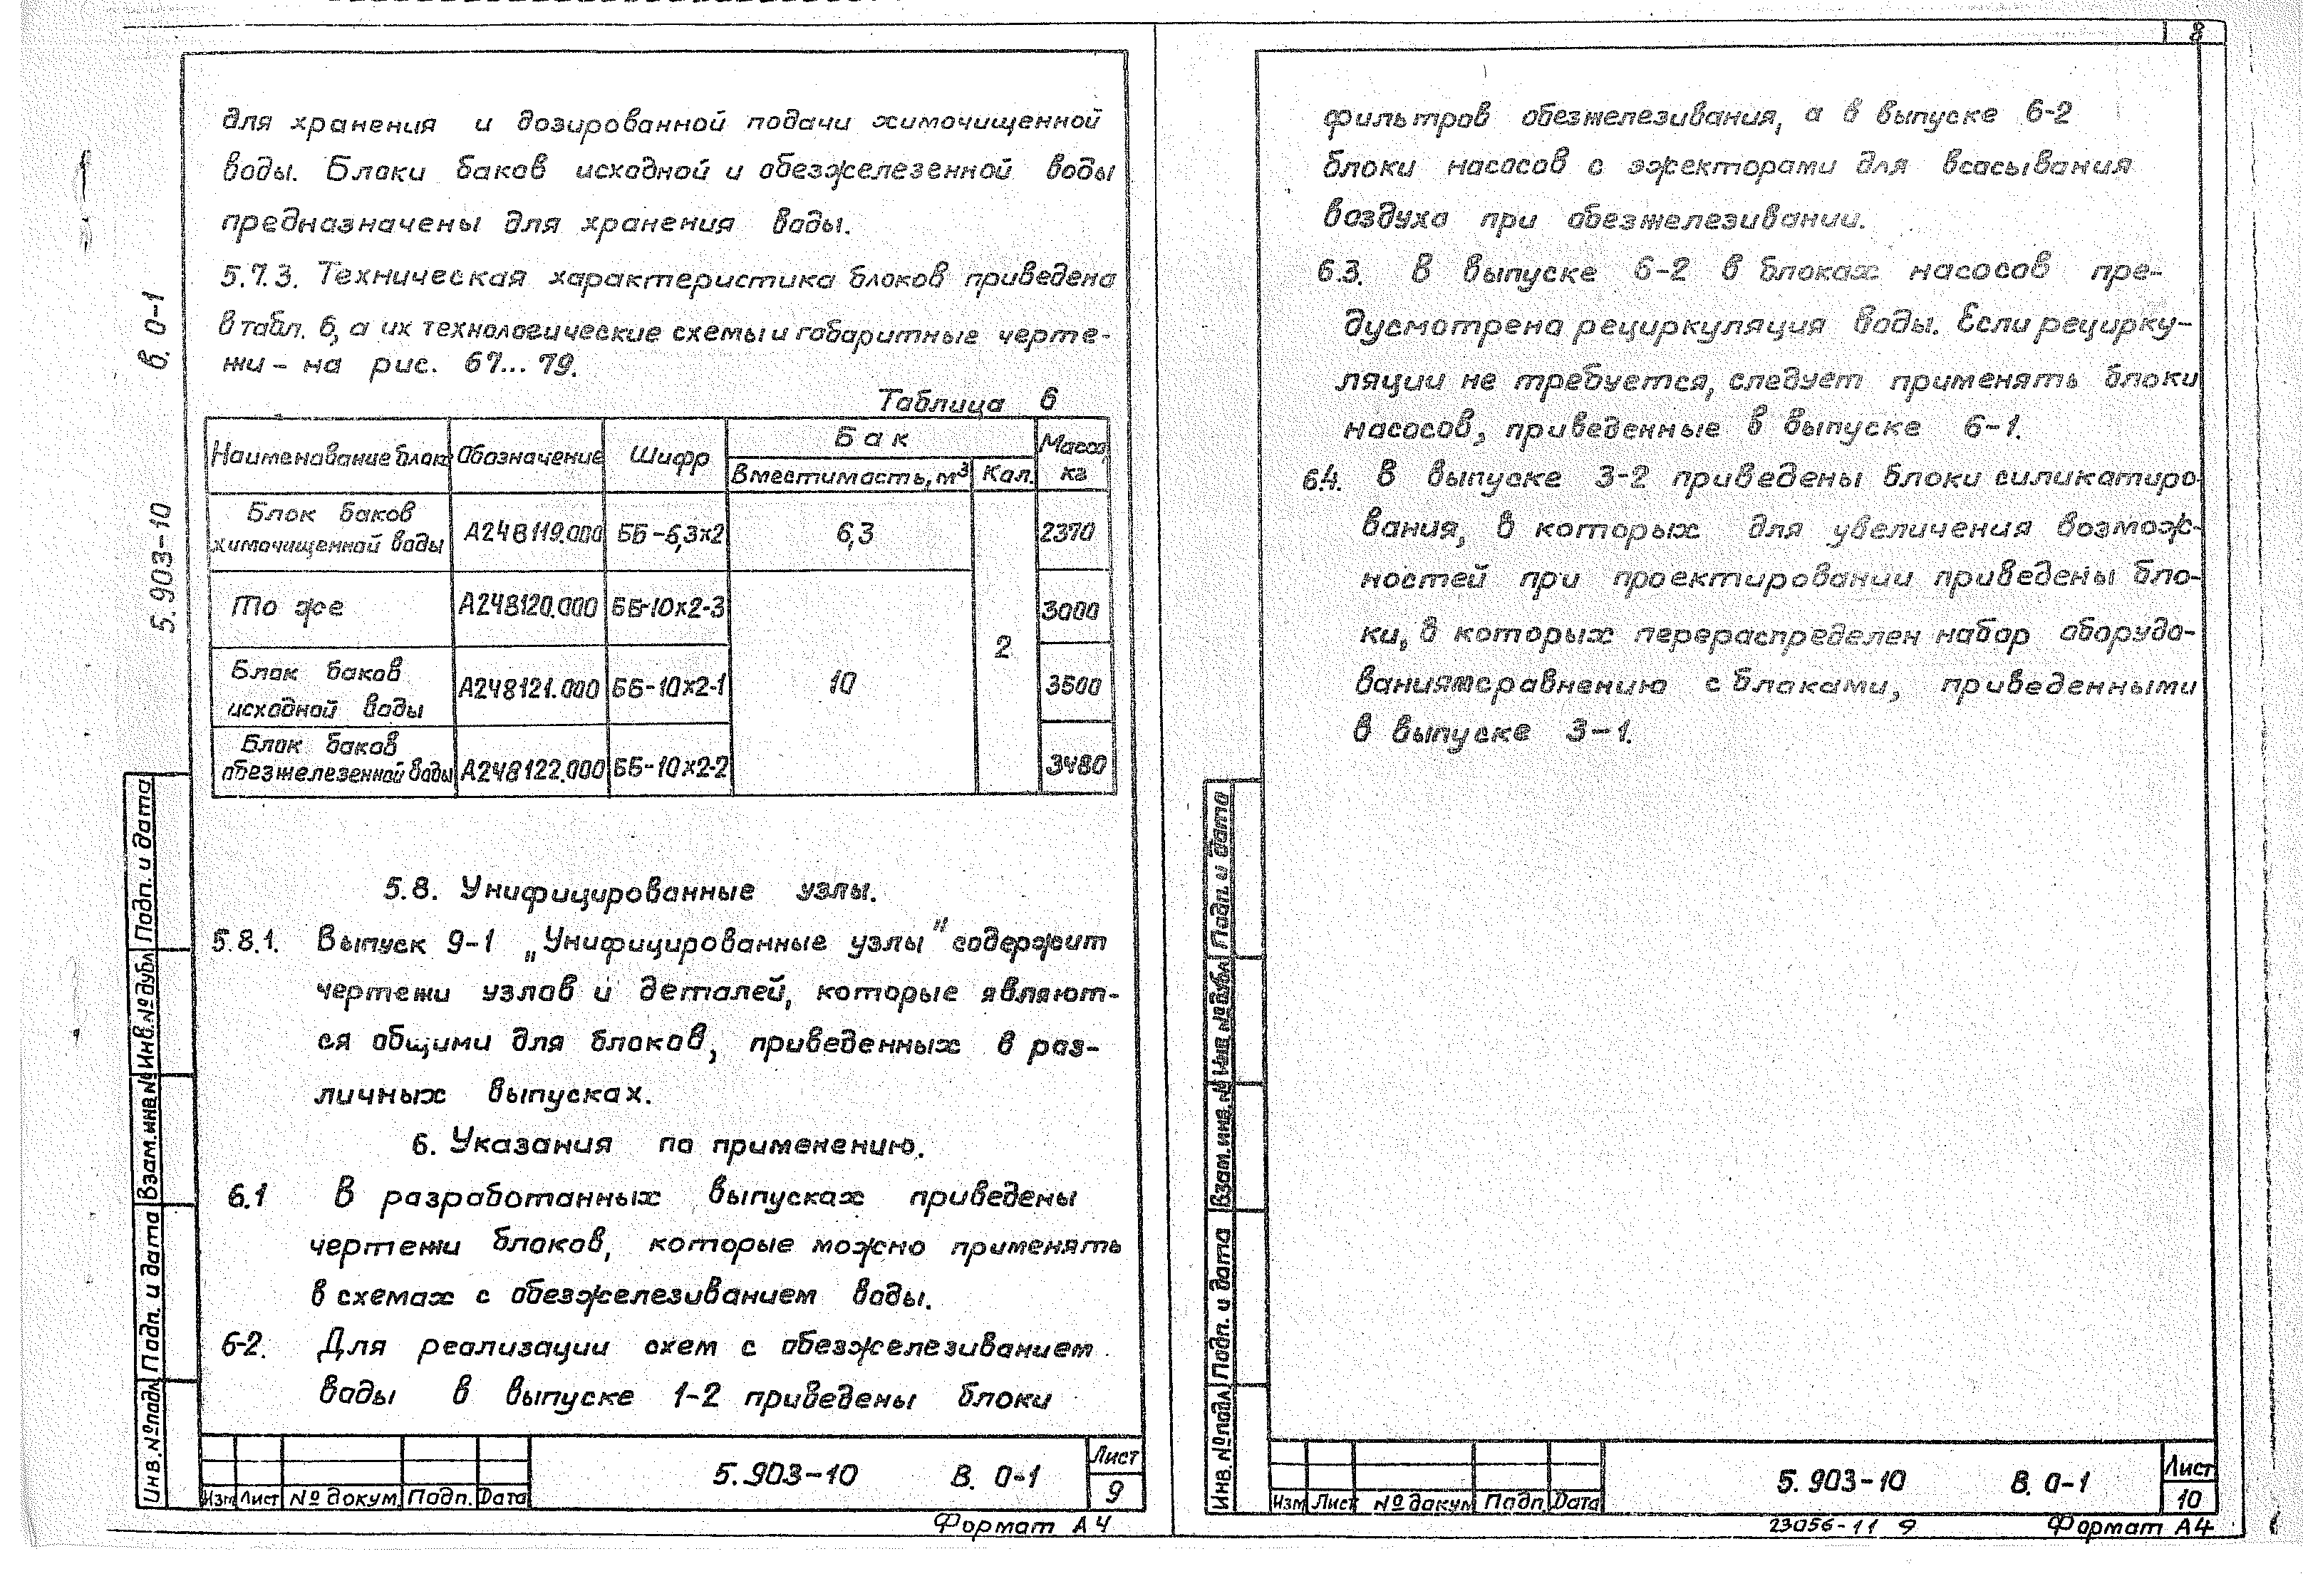 для хранения и дозированной подачи химочищенной
воды. Блоки баков исходной и обезжелезенной воды
предназначены для хранения воды.
5.7.3. Техническая характеристика блоков приведена
в табл. 6, а их технологические схемы и габаритные черте-
жи - на рис. 67... 79.
Таблица 6
Наименование блок Обозначение Шифр Бак Масса, кг
Вместимость, м³ Кол.
Блок баков химочищенной воды А248119.000 ББ-6,3х2 6,3 2 2370
То же А248120.000 ББ-10х2-3 10 3000
Блок баков исходной воды А248121.000 ББ-10х2-1 3500
Блок баков обезжелезенной воды А248122.000 ББ-10х2-2 3480
5.8. Унифицированные узлы.
5.8.1. Выпуск 9-1 „Унифицированные узлы" содержит
чертежи узлов и деталей, которые являют-
ся общими для блоков, приведенных в раз-
личных выпусках.
6. Указания по применению.
6.1 В разработанных выпусках приведены
чертежи блоков, которые можно применять
в схемах с обезжелезиванием воды.
6-2. Для реализации схем с обезжелезиванием
воды в выпуске 1-2 приведены блоки
5.903-10 в. 0-1
Подп. и дата
Инв.№дубл
Взам.инв.№
Подп. и дата
Инв.№подл
Изм Лист № докум. Подп. Дата
5.903-10 В. 0-1
Лист
9
Формат А4
8
фильтров обезжелезивания, а в выпуске 6-2
блоки насосов с эжекторами для всасывания
воздуха при обезжелезивании.
6.3. В выпуске 6-2 в блоках насосов пре-
дусмотрена рециркуляция воды. Если рецирку-
ляции не требуется, следует применять блоки
насосов, приведенные в выпуске 6-1.
6.4. В выпуске 3-2 приведены блоки силикатиро
вания, в которых для увеличения возмож-
ностей при проектировании приведены бло-
ки, в которых перераспределен набор оборудо-
вания сравнению с блоками, приведенными
в выпуске 3-1.
Подп. и дата
Инв №дубл
Взам.инв.№
Подп. и дата
Инв.№подл
Изм Лист № докум Подп Дата
5.903-10 В. 0-1
Лист
10
23056-11 9
Формат А4